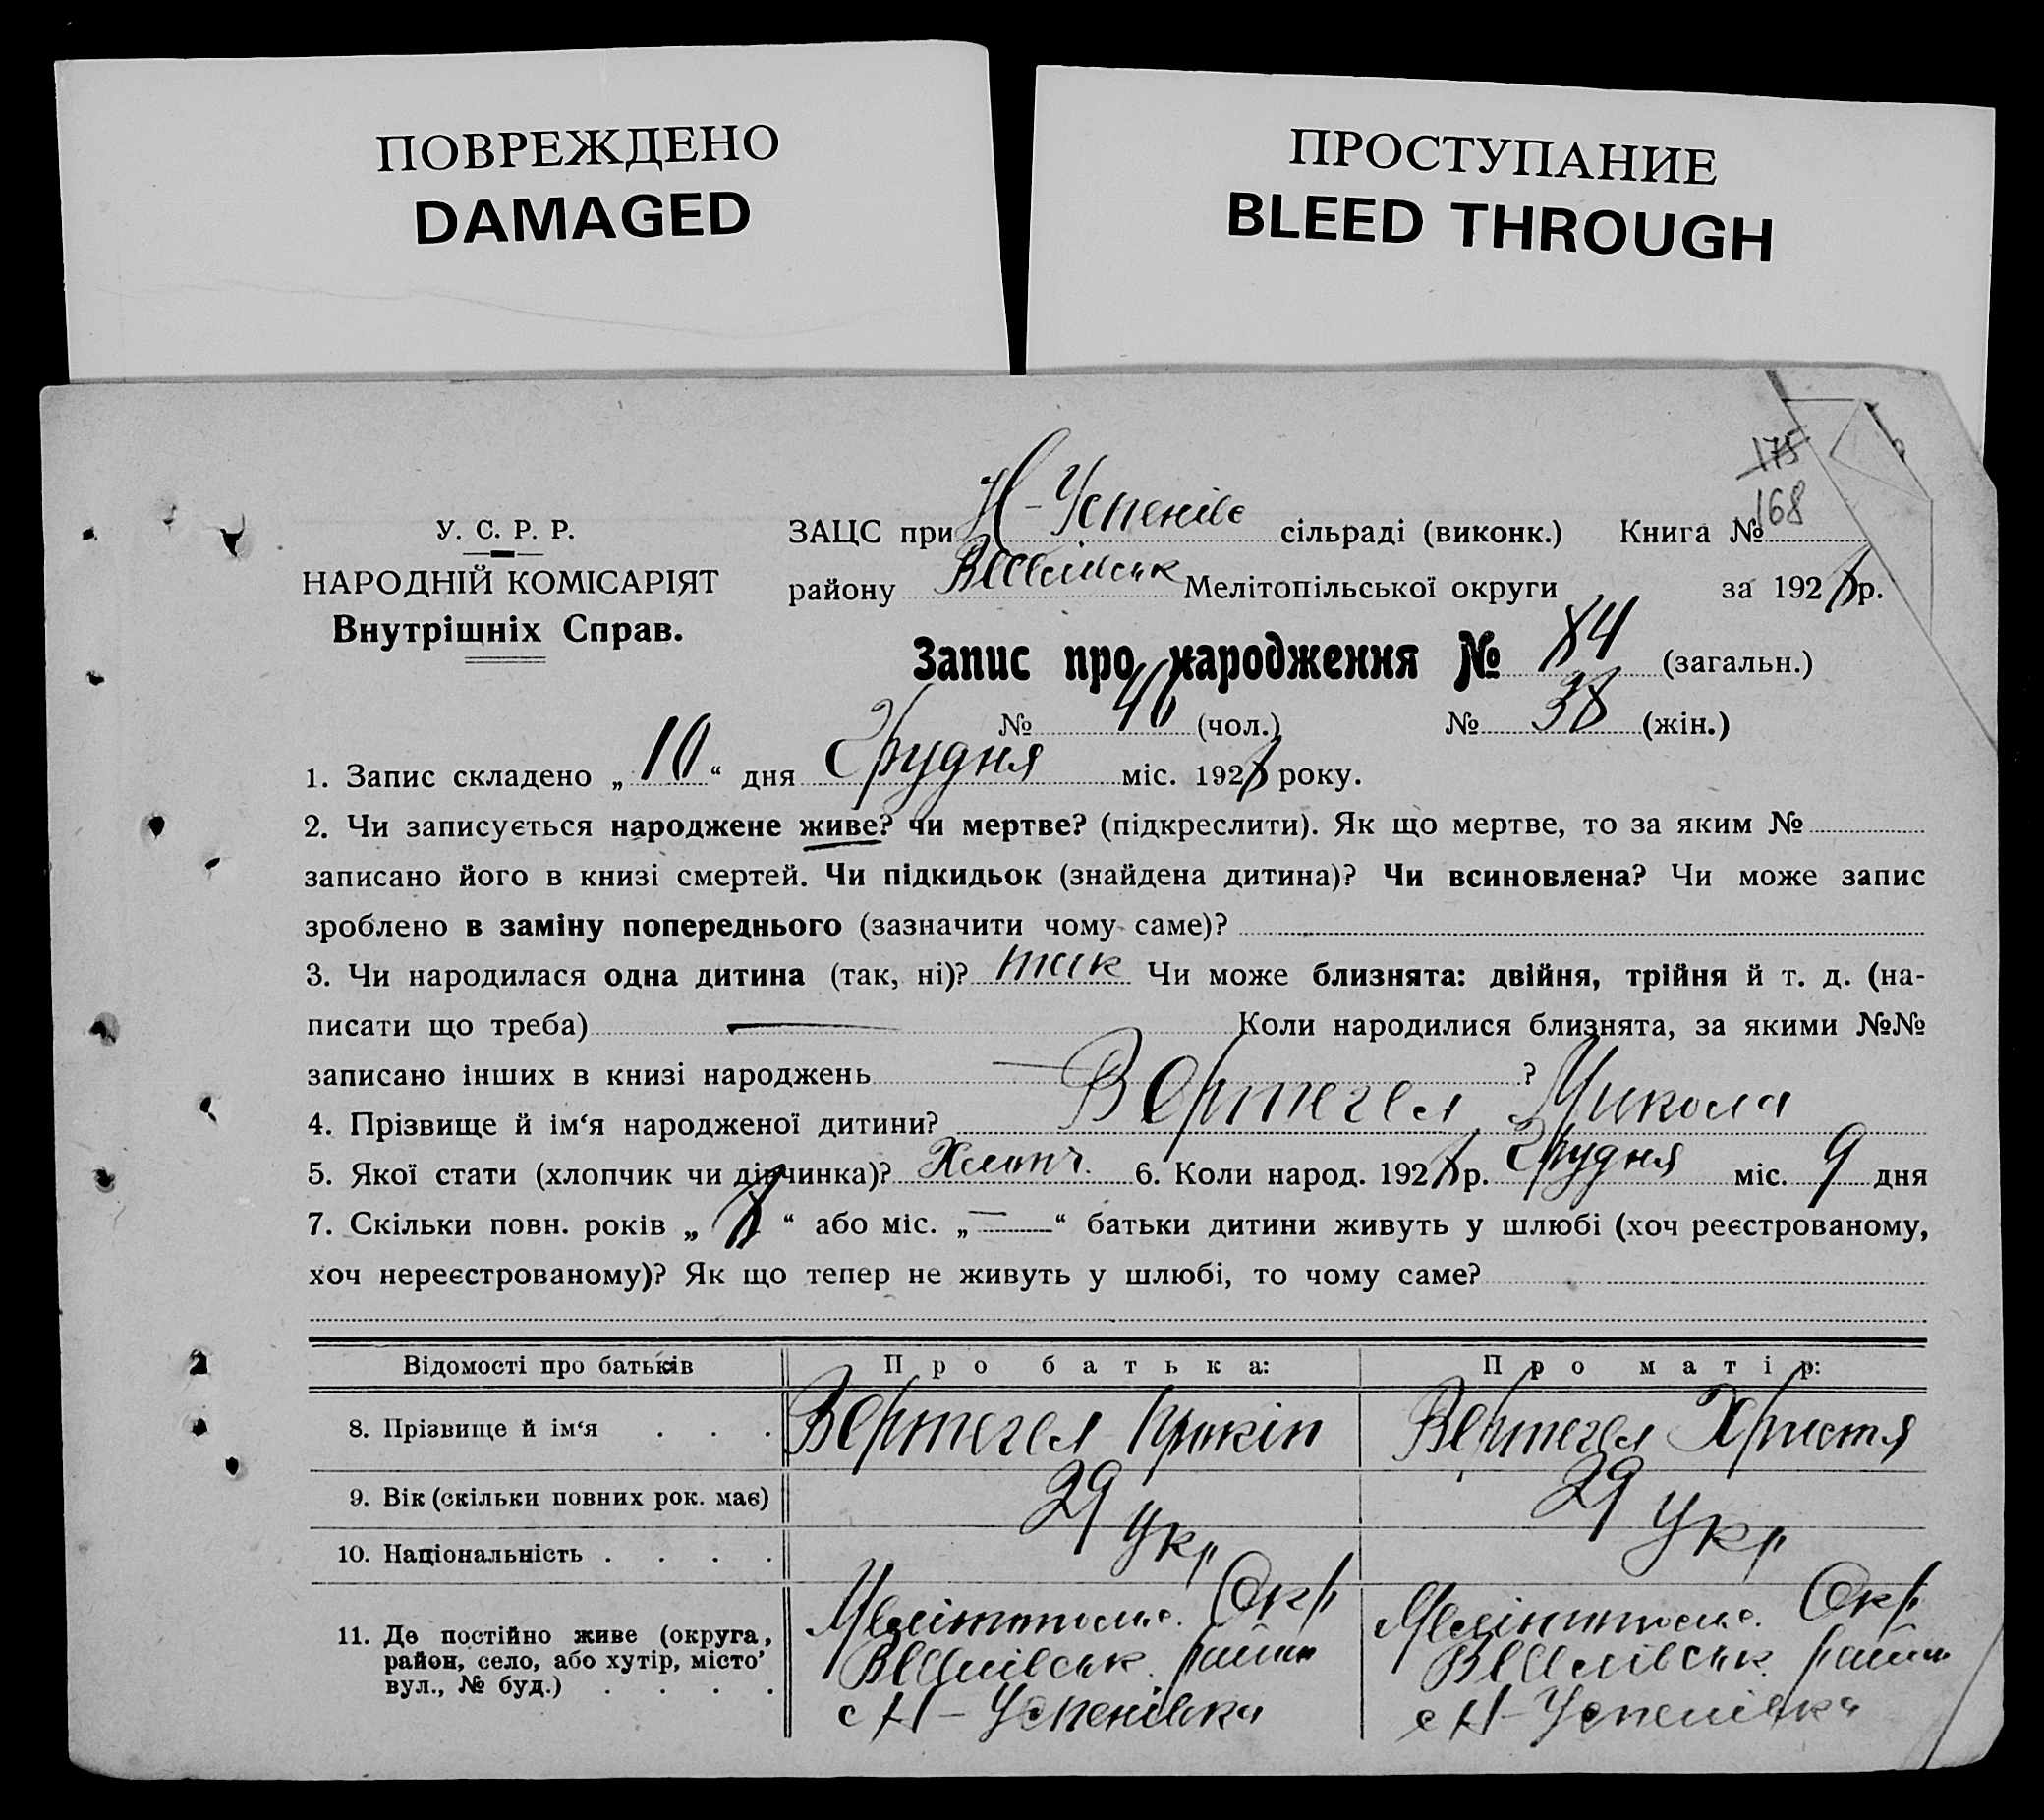 ПОВРЕЖДЕНО
DAMAGED
ПРОСТУПАНИЕ
BLEED THROUGH
175
168
У. С. Р. Р.
НАРОДНІЙ КОМІСАРІЯТ
Внутріщніх Справ.
ЗАЦС при Н-Успенівс сільраді (виконк.) Книга №
району Мелітопільської округи за 1928 р.
Запис про народження № 84 (загальн.)
№ 46 (чол.) № 38 (жін.)
1. Запис складено „10“ дня Грудня міс. 1928 року.
2. Чи записується народжене живе? чи мертве? (підкреслити). Як що мертве, то за яким №
записано його в книзі смертей. Чи підкидьок (знайдена дитина)? Чи всиновлена? Чи може запис
зроблено в заміну попереднього (зазначити чому саме)?
3. Чи народилася одна дитина (так, ні)? так Чи може близнята: двійня, трійня й т. д. (на-
писати що треба) — Коли народилися близнята, за якими №№
записано інших в книзі народжень — ?
4. Прізвище й ім‘я народженої дитини? Вертегел Микола
5. Якої стати (хлопчик чи дівчинка)? Хлопч. 6. Коли народ. 1928 р. Грудня міс. 9 дня
7. Скільки повн. років „8“ або міс. „—“ батьки дитини живуть у шлюбі (хоч реєстрованому,
хоч нереєстрованому)? Як що тепер не живуть у шлюбі, то чому саме?
Відомості про батьків Про батька: Про матір:
8. Прізвище й ім‘я . . . Вертегел Прокіп Вертегел Христя
9. Вік (скільки повних рок. має) 29 29
10. Національність . . . . Укр Укр
11. Де постійно живе (округа,
район, село, або хутір, місто’
вул., № буд.) . . . .
Мелітопольс. Окр
район
с Н-Успенівка
Мелітопольс. Окр
район
с Н-Успенівка